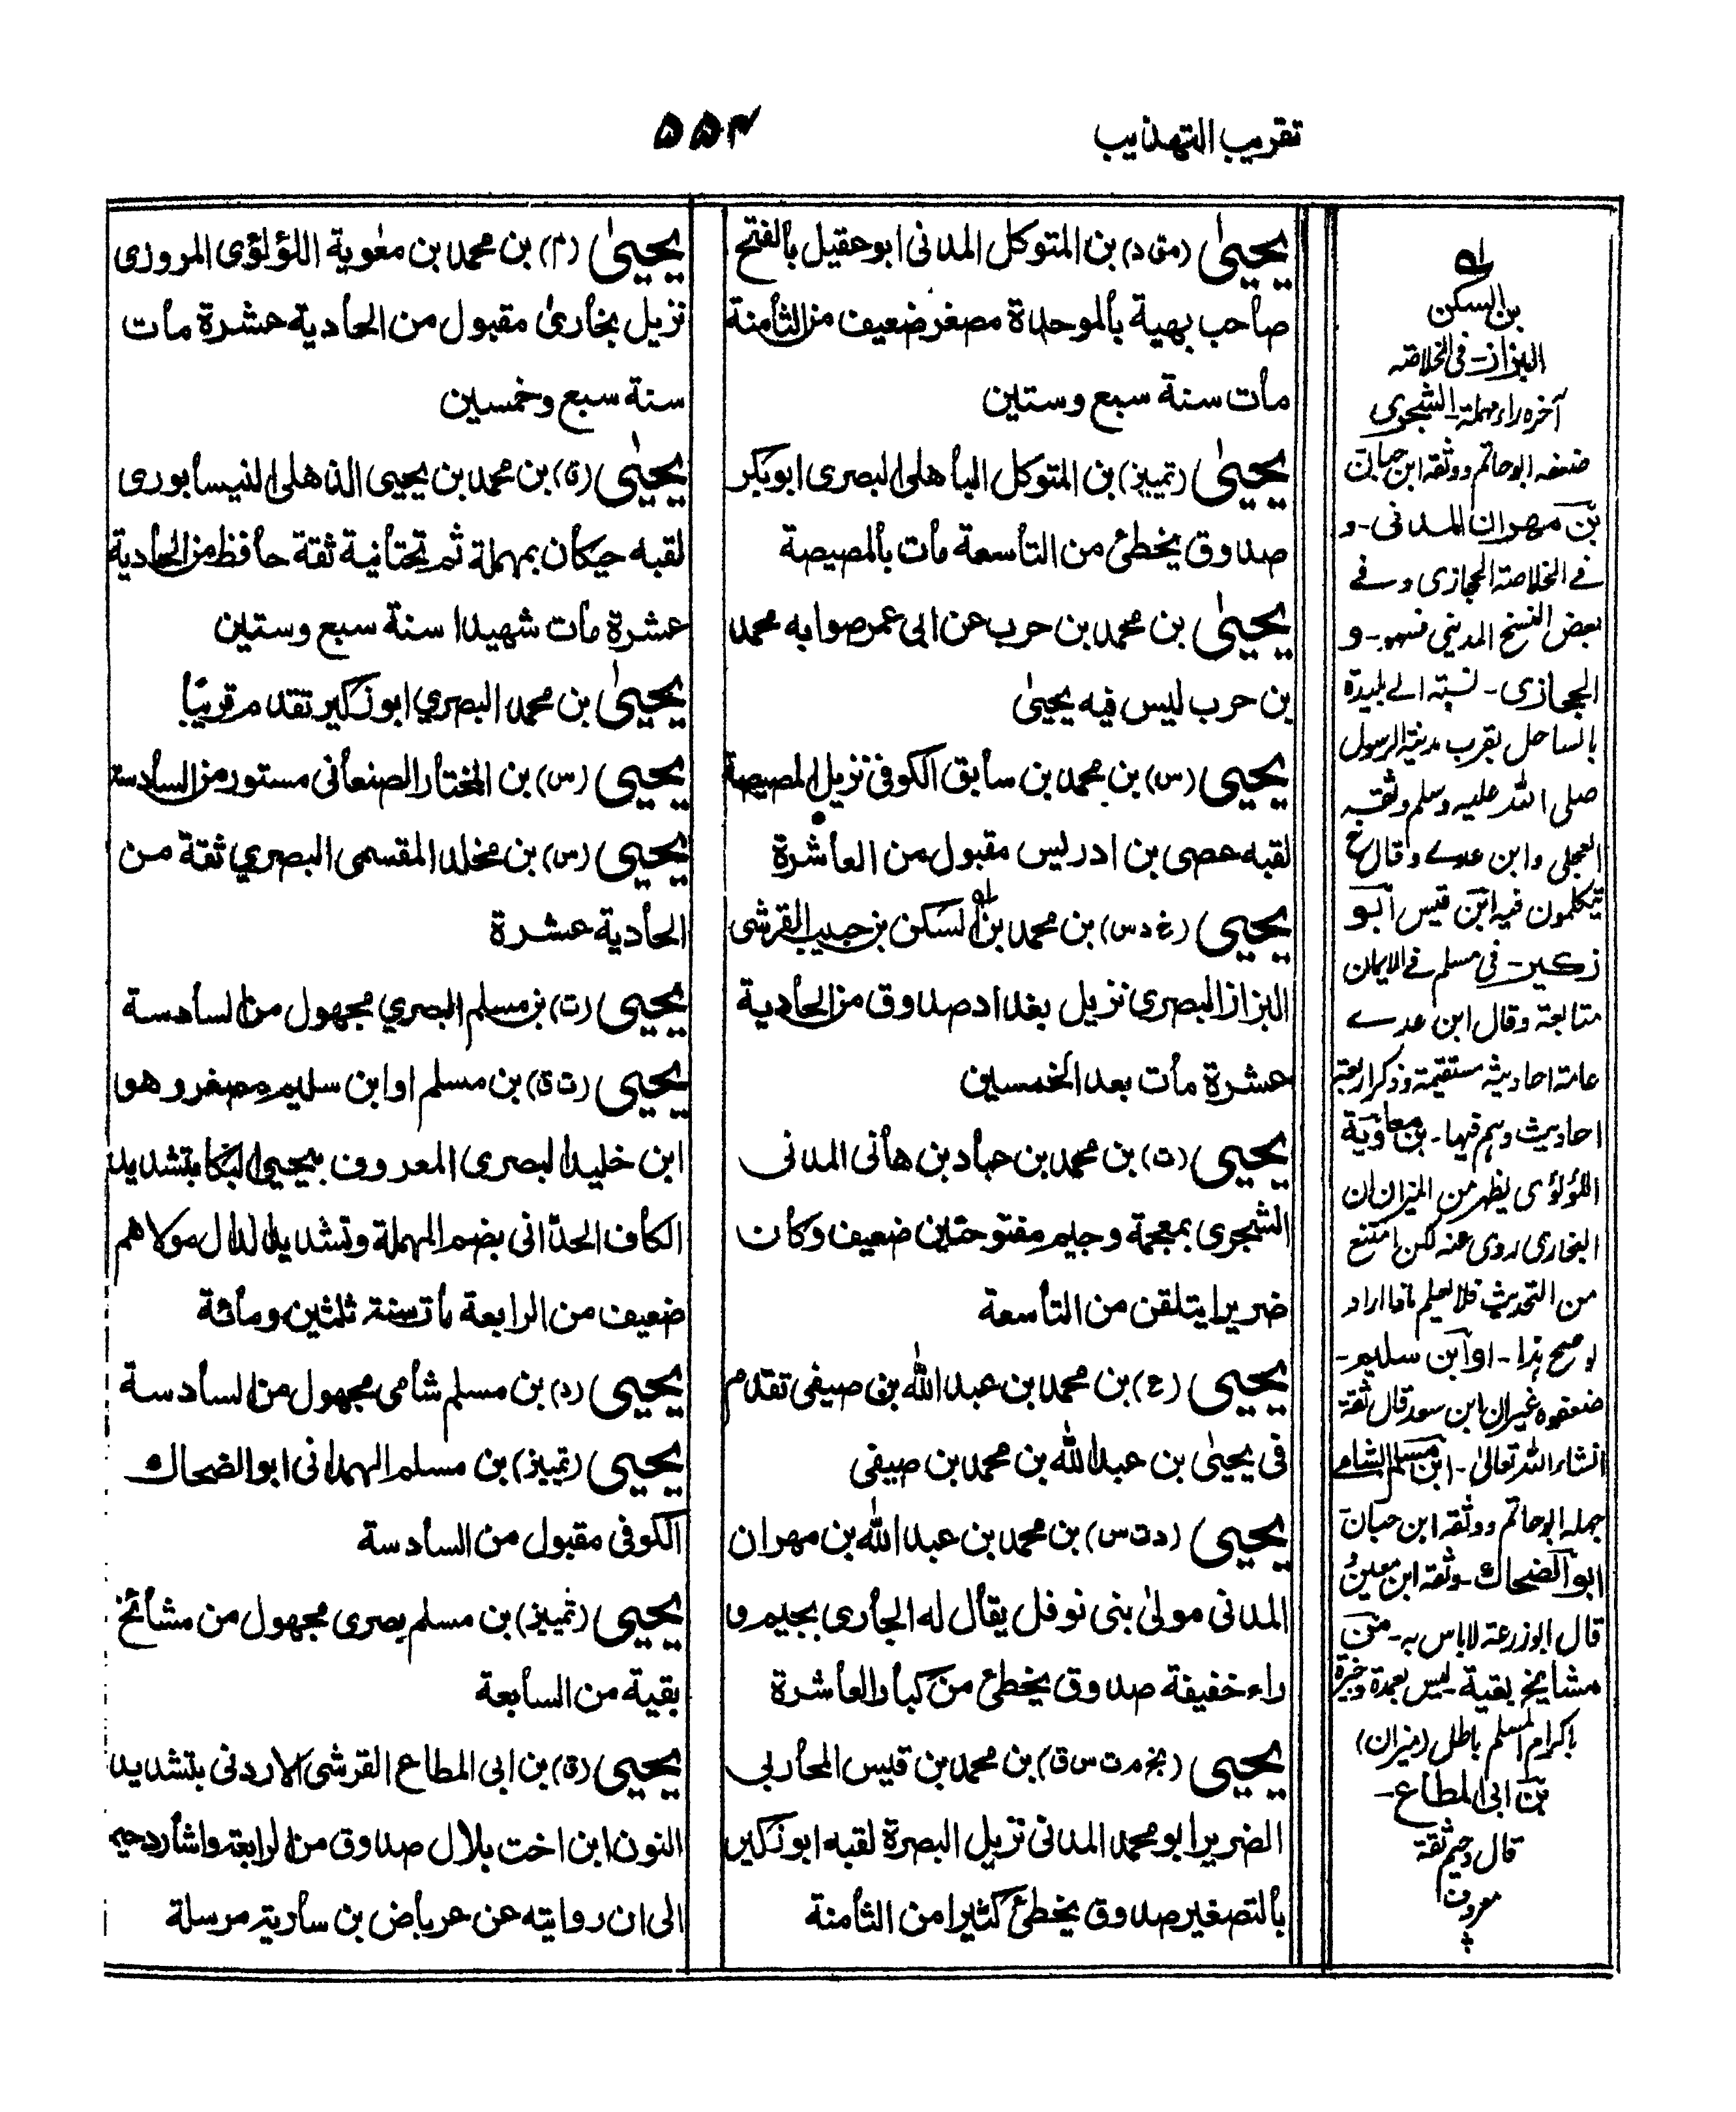 تقریب التهذیب
۵۵۴
یحییٰ (مق د) بن المتوکل المدنی ابو عقیل بالفتح
صاحب بهیة بالموحدة مصغر ضعیف من الثامنة
مات سنة سبع وستین
یحییٰ (تمییز) بن المتوکل الباهلی البصری ابوبکر
صدوق یخطئ من التاسعة مات بالمصیصة
یحییٰ بن محمد بن حرب عن ابی عمر صوابه محمد
بن حرب لیس فیه یحییٰ
یحیی (س) بن محمد بن سابق الکوفی نزیل المصیصة
لقبه عصی بن ادریس مقبول من العاشرة
یحیی (خ د س) بن محمد بن السکن بن حبیب القرشی
البزاز البصری نزیل بغداد صدوق من الحادیة
عشرة مات بعد الخمسین
یحیی (ت) بن محمد بن عباد بن هانی المدنی
الشجری بمعجمة وجیم مفتوحتین ضعیف وکان
ضریرا یتلقن من التاسعة
یحیی (ع) بن محمد بن عبد الله بن صیفی تقدم
فی یحییٰ بن عبد الله بن محمد بن صیفی
یحیی (د ت س) بن محمد بن عبد الله بن مهران
المدنی مولیٰ بنی نوفل یقال له الجاری بجیم و
راء خفیفة صدوق یخطئ من کبار العاشرة
یحیی (بخ م ت س ق) بن محمد بن قیس المحاربی
الضریر ابو محمد المدنی نزیل البصرة لقبه ابو زکیر
بالتصغیر صدوق یخطئ کثیرا من الثامنة
یحییٰ (م) بن محمد بن معٰویة اللؤلؤی المروزی
نزیل بخاریٰ مقبول من الحادیة عشرة مات
سنة سبع وخمسین
یحییٰ (ق) بن محمد بن یحیی الذهلی النیسابوری
لقبه حیکان بمهملة ثم تحتانیة ثقة حافظ من الحادیة
عشرة مات شهیدا سنة سبع وستین
یحییٰ بن محمد البصری ابو زکیر تقدم قریبًا
یحیی (س) بن المختار الصنعانی مستور من السادسة
یحیی (س) بن مخلد المقسمی البصری ثقة من
الحادیة عشرة
یحیی (ت) بن مسلم البصری مجهول من السادسة
یحیی (ت ق) بن مسلم او ابن سلیم مصغر وهو
ابن خلید البصری المعروف بیحیی البکا بتشدید
الکاف الحدّانی بضم المهملة وتشدید الدال مولاهم
ضعیف من الرابعة مات سنة ثلثین ومائة
یحیی (د) بن مسلم شامی مجهول من السادسة
یحیی (تمییز) بن مسلم الهمدانی ابو الضحاک
الکوفی مقبول من السادسة
یحیی (تمییز) بن مسلم بصری مجهول من مشائخ
بقیة من السابعة
یحیی (ق) بن ابی المطاع القرشی الاردنی بتشدید
النون ابن اخت بلال صدوق من الرابعة واشار دحیم
الی ان روایته عن عرباض بن ساریة مرسلة
بن السکن
البزار۔ فی الخلاصة
آخره راء مهملة۔ الشجری
ضعفه ابو حاتم ووثقه ابن حبان
بن مهران المدنی۔ و
فے الخلاصة الحجازی و فے
بعض النسخ المدینی فسهو۔ و
الحجازی۔ نسبة الے بلیدة
بالساحل بقرب مدینة الرسول
صلی الله علیه وسلم وثقه
العجلی وابن عدے وقال خ
یتکلمون فیه ابن قیس ابو
زکیر۔ فی مسلم فے الایمان
متابعة وقال ابن عدے
عامة احادیثه مستقیمة وذکر اربعة
احادیث وهم فیها۔ بن معاویة
اللؤلؤی یظهر من المیزان ان
البخاری روی عنه لکن امتنع
من التحدیث فلا نعلم ماذا اراد
لو صح هذا۔ او ابن سلیم۔
ضعفوه غیر ان ابن سعد قال ثقة
انشاء الله تعالیٰ۔ ابن مسلم الشامی
جهله ابو حاتم ووثقه ابن حبان
ابو الضحاک۔ وثقه ابن معین
قال ابو زرعة لا باس به۔ من
مشایخ بقیة۔ لیس بعمدة وخبره
باکرام المسلم باطل (میزان)
بن ابی المطاع۔
قال دحیم ثقة
معروف